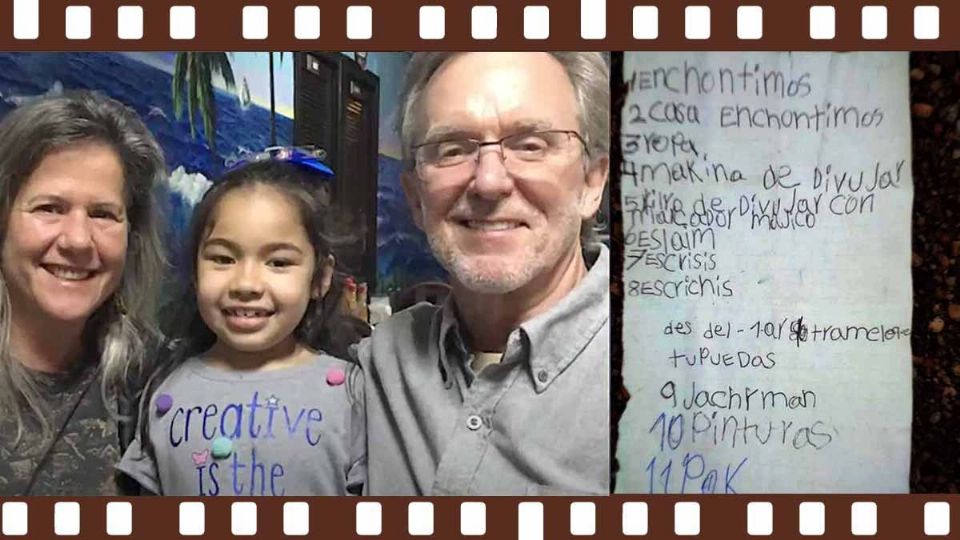 creative
is the
1Enchontimos
2 casa Enchontimos
3 ropa
4 makina de Divujar
5 Livro de Divujar con
marcador majico
6 Eslaim
7 Escrisis
8 Escrichis
des del-1-a
tramelo
tu PUEDAS
9 Jachrman
10 Pinturas
11 Pak